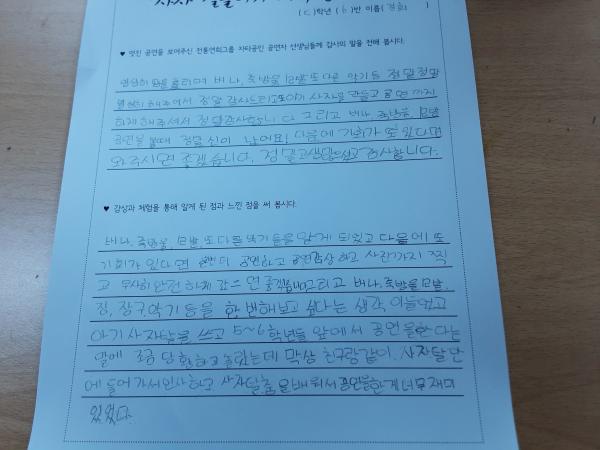 (6)학년 (6)반 이름( )
♥ 멋진 공연을 보여주신 전통연희그룹 자타공인 공연자 선생님들께 감사의 말을 전해 봅시다.
열심히 땀을 흘리며 버나, 죽방울, 열발 또 다른 악기 등 정말 정말
열심히 해주셔서 정말 감사드리고 아기 사자를 만들고 공연까지
하게 해주셔서 정말 감사합니다 그리고 버나, 죽방울,
공연을 볼때 정말 신이 났어요! 다음에 기회가 또 있다면
와주시면 좋겠습니다. 정말 고생많았고 감사합니다.
♥ 감상과 체험을 통해 알게 된 점과 느낀 점을 써 봅시다.
버나, 죽방울, 또 다른 악기 등을 알게 되었고 다음에 또
기회가 있다면 한번더 공연하고 공연감상 하고 사진까지 찍
고 무사히 안전하게 그리고 버나, 죽방울,
징, 장구 악기 등을 한번 해보고 싶다는 생각이 들었고
아기 사자탈을 쓰고 5~6학년들 앞에서 공연을 한다는
말에 조금 당황하고 놀랐는데 막상 친구랑 같이 사자탈 안
에 들어가서 인사하고 사자탈춤을 배워서 공연을 한게 너무 재미
있었다.